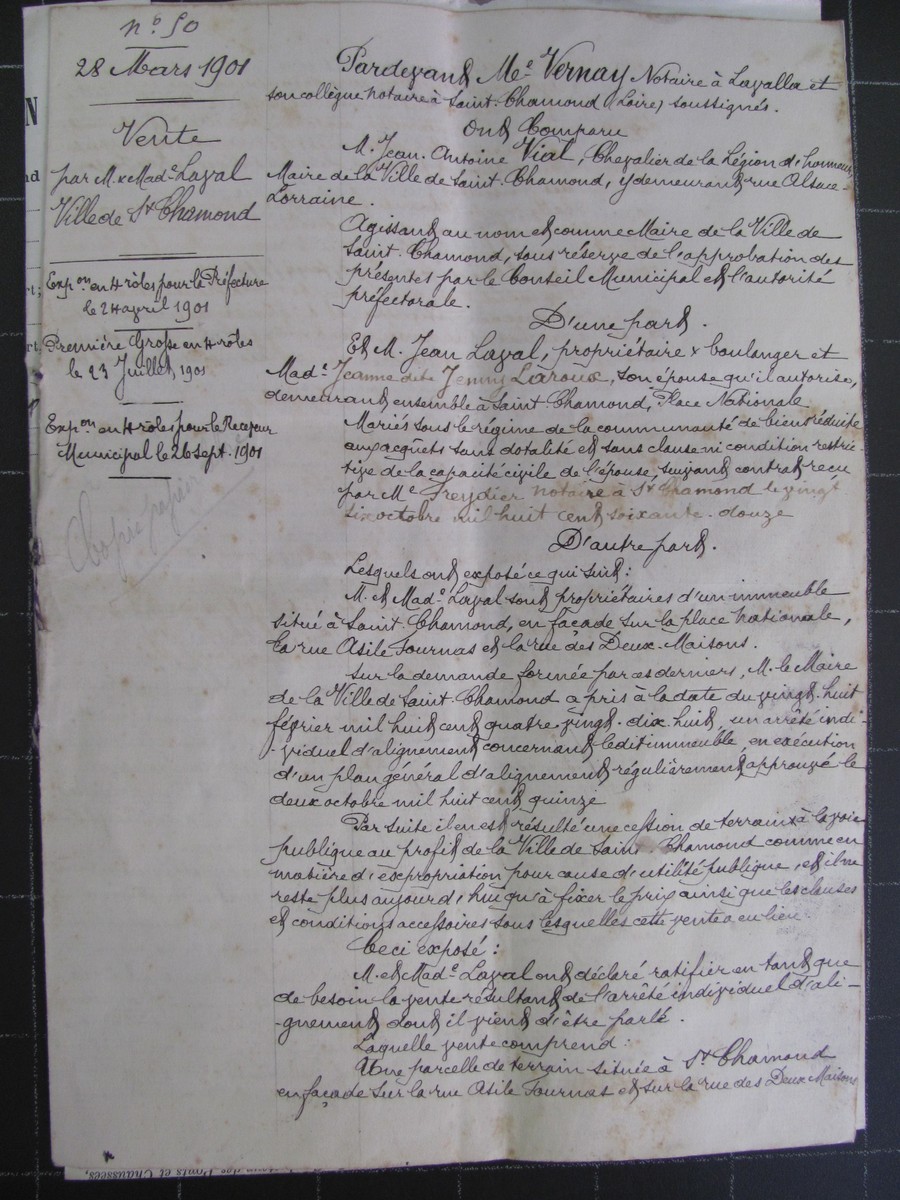 n.º 50
28 Mars 1901
Vente
par M. x Mad.e Laval
Ville de St Chamond
Exp.on en 4 rôles pour la Préfecture
le 24 avril 1901
Première Grosse en 4 rôles
le 23 Juillet 1901
Exp.on en 4 rôles pour le Receveur
Municipal le 26 Sept. 1901
Pardevant Me. Vernay Notaire à Lavalla et
son collègue notaire à Saint-Chamond (Loire) soussignés.
Ont Comparu
M. Jean-Antoine Vial, Chevalier de la Légion d'honneur,
Maire de la Ville de Saint-Chamond, y demeurant rue Alsace-
Lorraine.
Agissant au nom et comme Maire de la Ville de
Saint-Chamond, sous réserve de l'approbation des
présentes par le Conseil Municipal et l'autorité
préfectorale.
D'une part.
Et M. Jean Laval, propriétaire x boulanger et
Mad.e Jeanne dite Jenny Laroux, son épouse qu'il autorise,
demeurant ensemble à Saint-Chamond, Place Nationale.
Mariés sous le régime de la communauté de biens réduite
aux acquêts sans dotalité et sans clause ni condition restric-
tive de la capacité civile de l'épouse, suivant contrat reçu
par Me. Freydier notaire à St Chamond le vingt
six octobre mil huit cent soixante-douze
D'autre part.
Lesquels ont exposé ce qui suit:
M. et Mad.e Laval sont propriétaires d'un immeuble
situé à Saint-Chamond, en façade sur la place Nationale,
la rue Asile Fournas et la rue des Deux-Maisons.
Sur la demande formée par ces derniers, M. le Maire
de la Ville de Saint-Chamond a pris à la date du vingt-huit
février mil huit cent quatre-vingt-dix-huit, un arrêté indi-
-viduel d'alignement concernant ledit immeuble, en exécution
d'un plan général d'alignement régulièrement approuvé le
deux octobre mil huit cent quinze
Par suite il en est résulté une cession de terrain x à la voie
publique au profit de la Ville de Saint-Chamond comme en
matière d'expropriation pour cause d'utilité publique, et il ne
reste plus aujourd'hui qu'à fixer le prix ainsi que les clauses
et conditions accessoires sous lesquelles cette vente a eu lieu.
Ceci exposé:
M. et Mad.e Laval ont déclaré ratifier en tant que
de besoin la vente résultant de l'arrêté individuel d'ali-
-gnement dont il vient d'être parlé.
Laquelle vente comprend:
Une parcelle de terrain située à St Chamond
en façade sur la rue Asile Fournas et sur la rue des Deux Maisons
des Ponts et Chaussées,